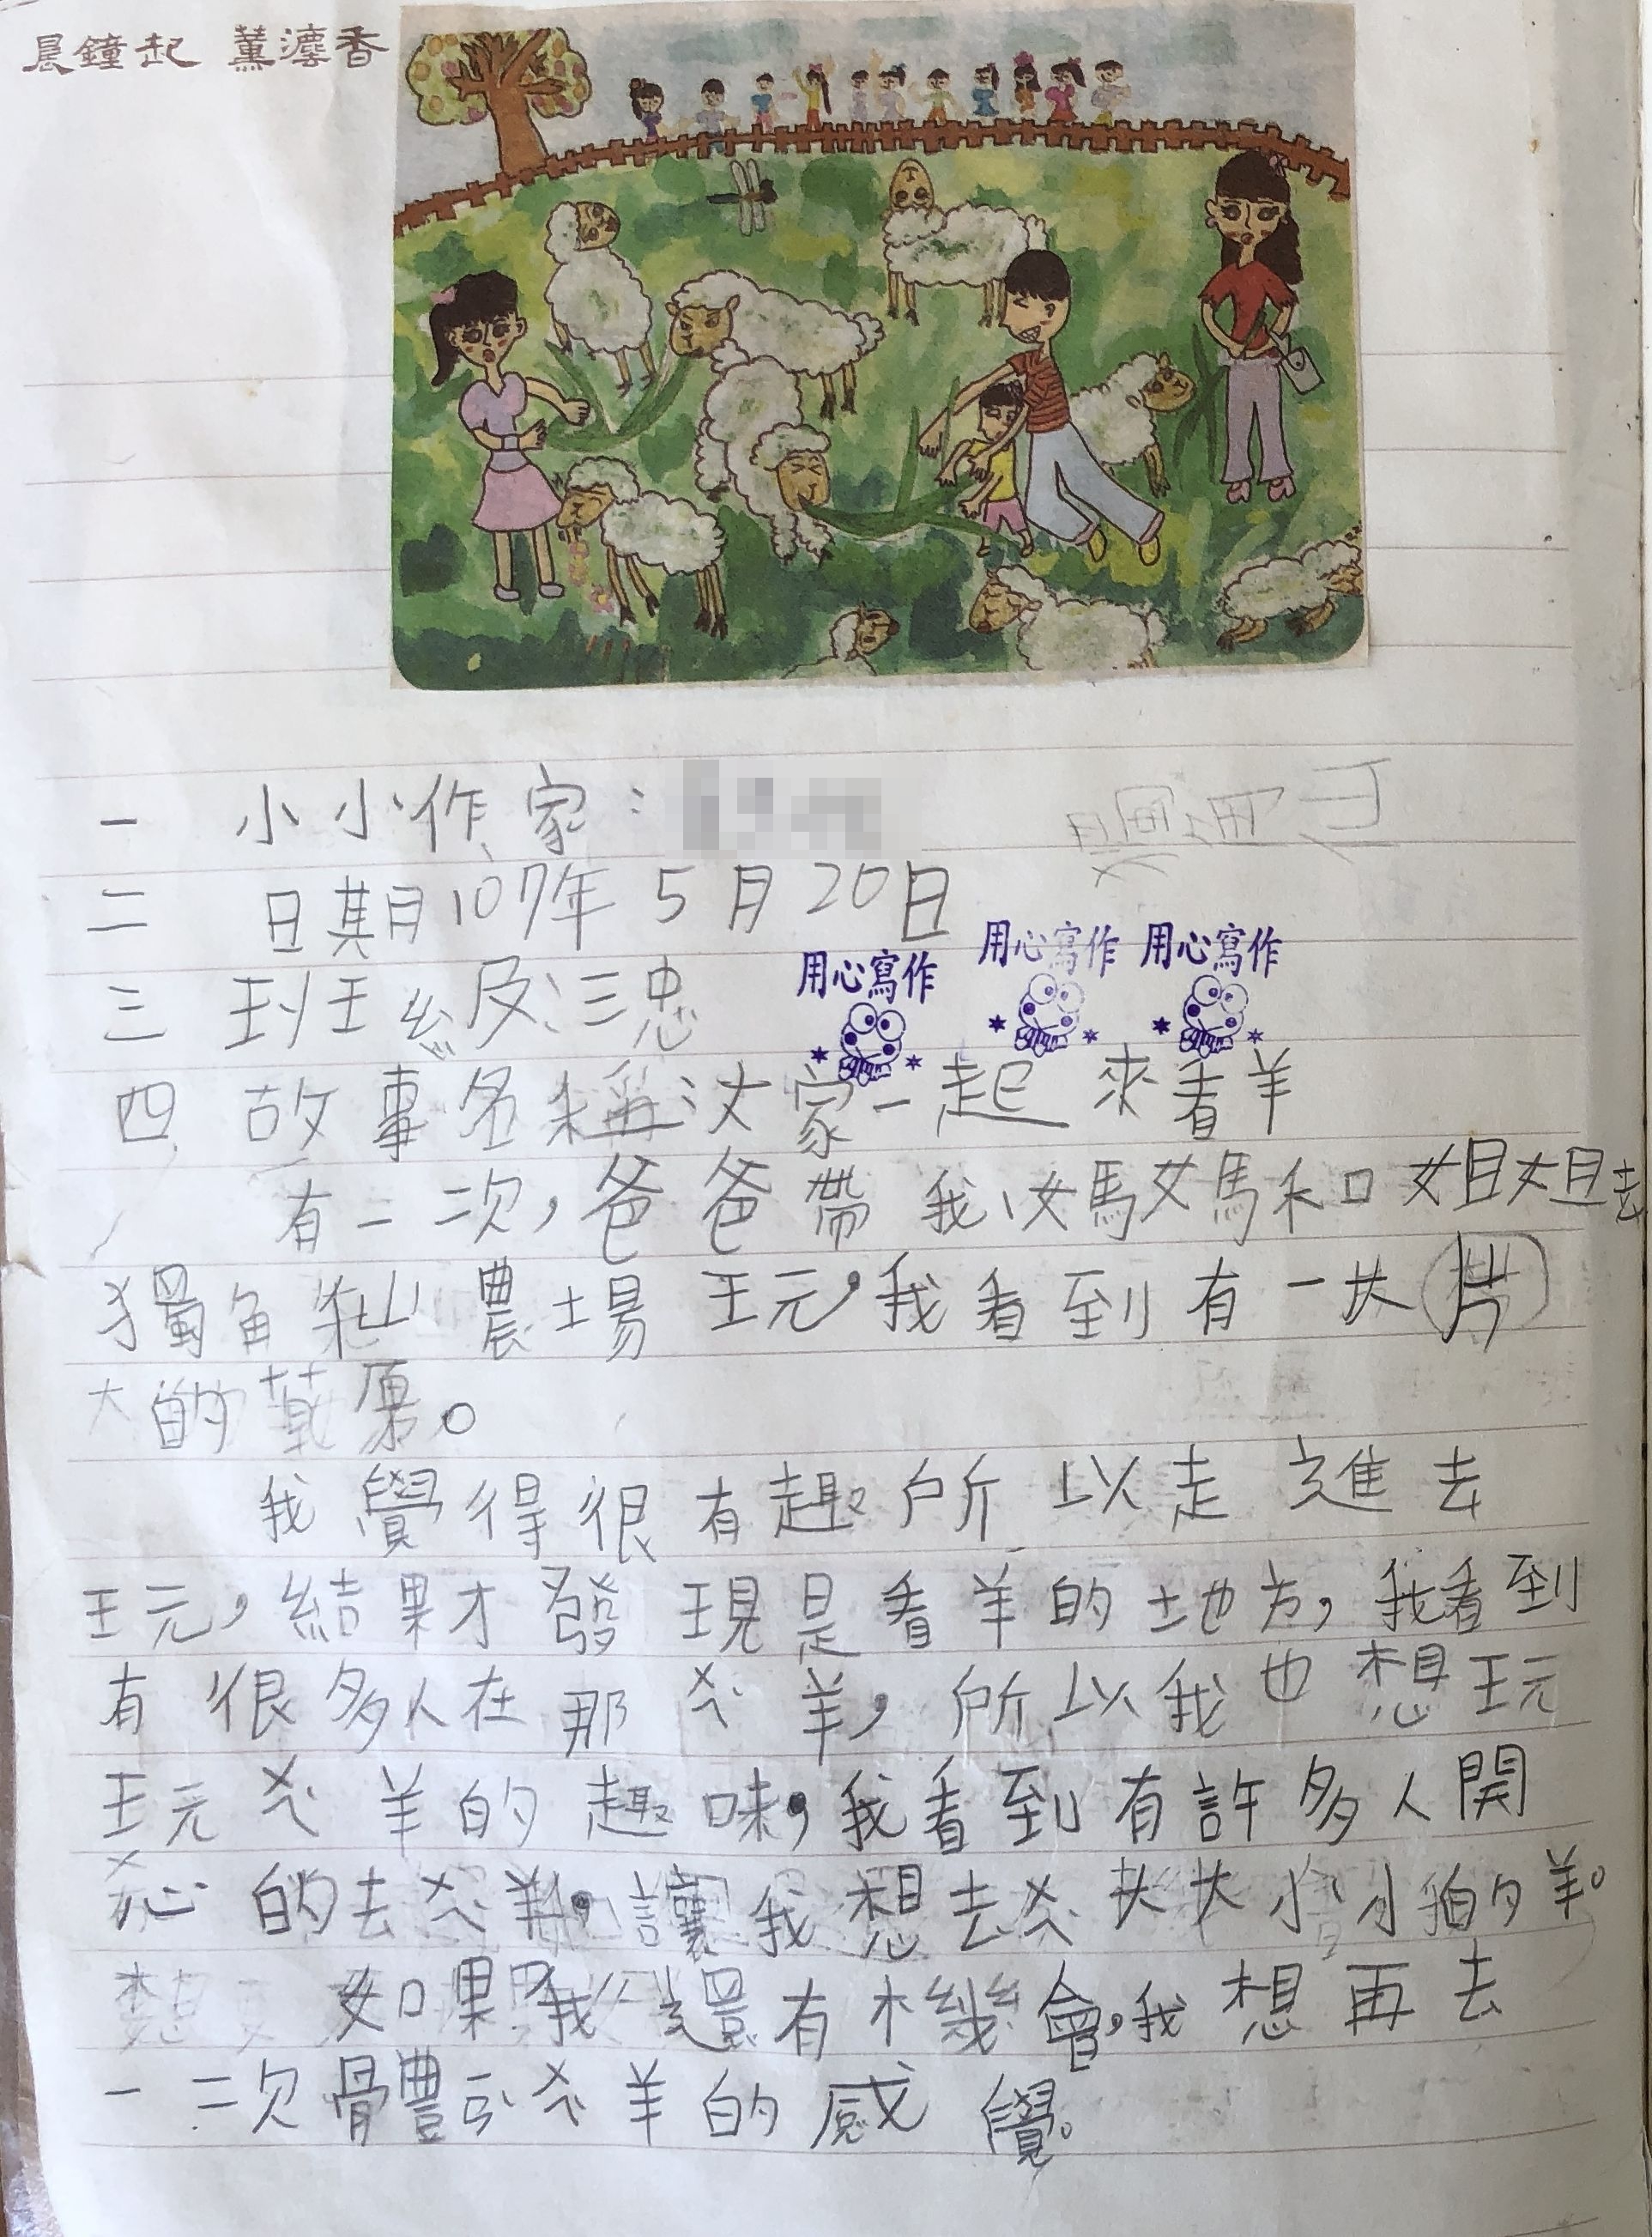 晨鐘起 薰瀀香
一 小小作家：
二 日期107年5月20日
三 班級：三忠
用心寫作 用心寫作 用心寫作
四 故事名稱：大家一起來看羊
有一次，爸爸帶我、媽媽和姐姐去
獨角仙農場玩，我看到有一大片
大的草原。
我覺得很有趣所以走進去
玩，結果才發現是看羊的地方，我看到
有很多人在那ㄨㄟˋ羊，所以我也想玩
玩ㄨㄟˋ羊的趣味，我看到有許多人開
心的去ㄨㄟˋ羊，讓我想去ㄨㄟˋ大大小小的羊。
如果我還有機會，我想再去
一次體ㄧㄢˋㄨㄟˋ羊的感覺。